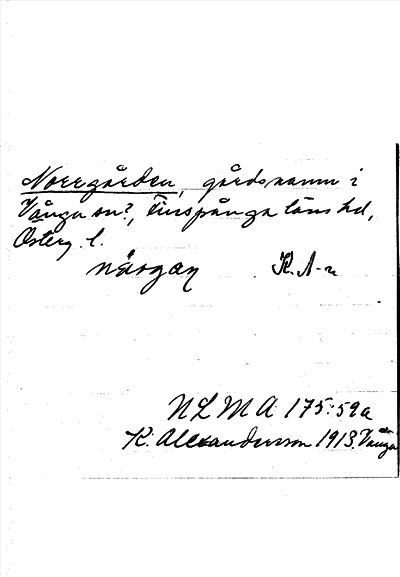 Norrgården, gårdsnamn i
Vånga sn?, Finspånga läns hd,
Österg. l.
nårgan K. A-n
NLMA 175:59a
K. Alexandersson 1913. Vånga